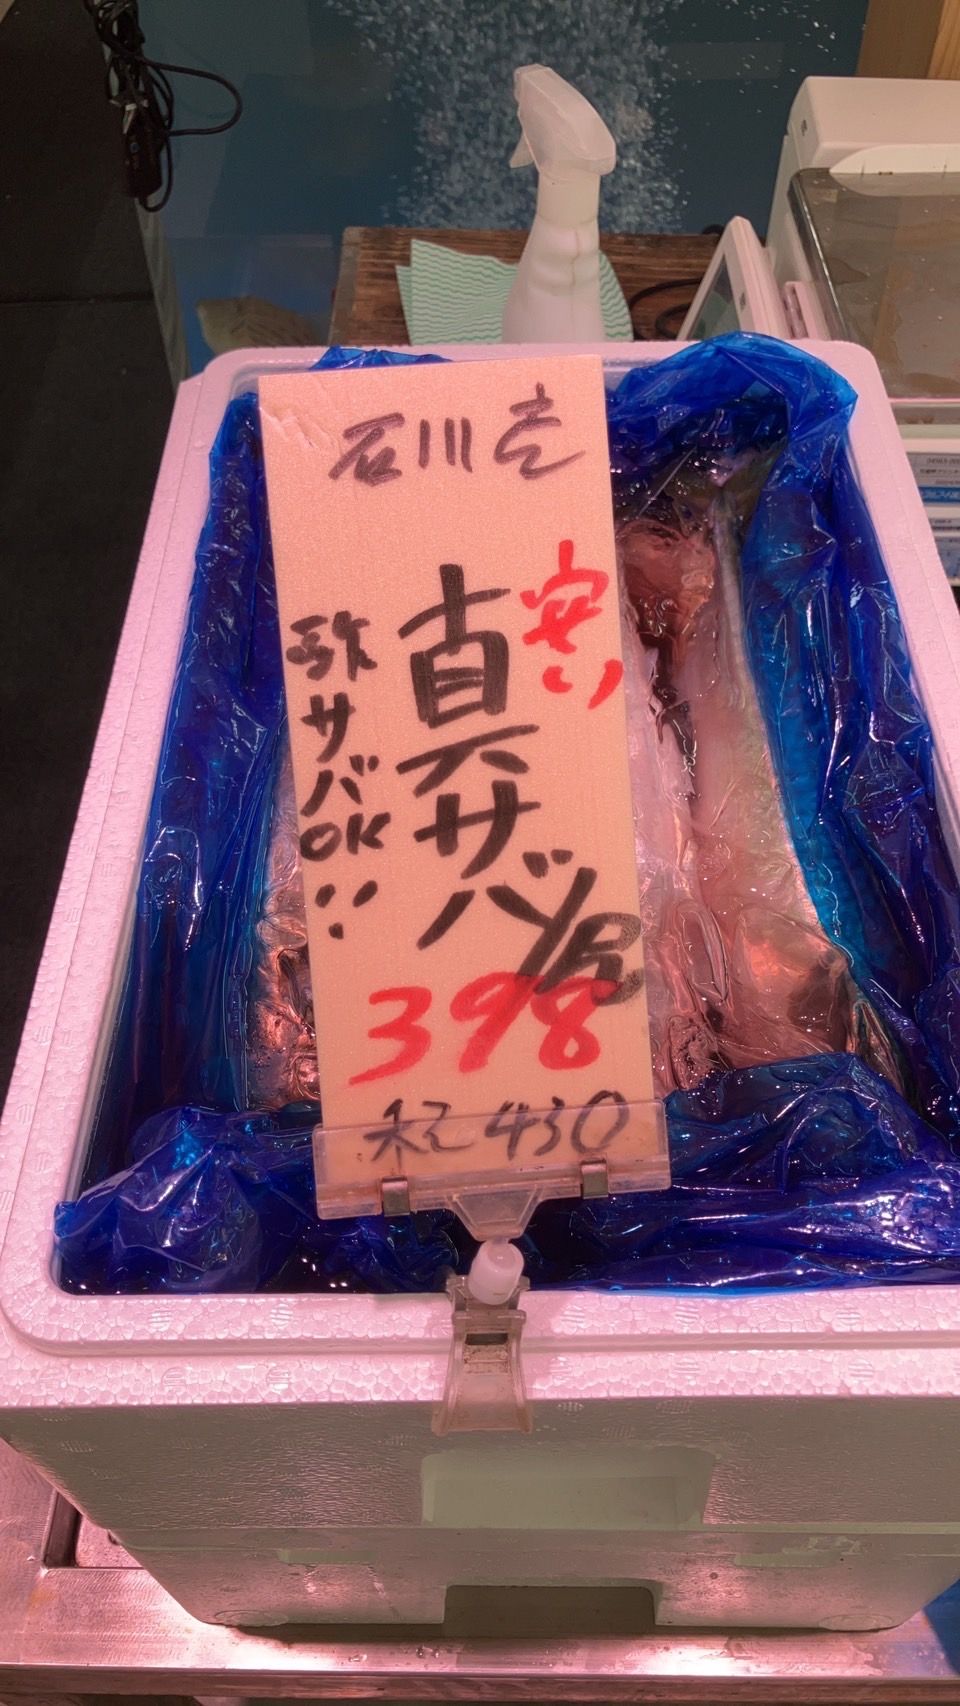 石川産
安い
真サバ/尾
酢サバOK!!
398
税430